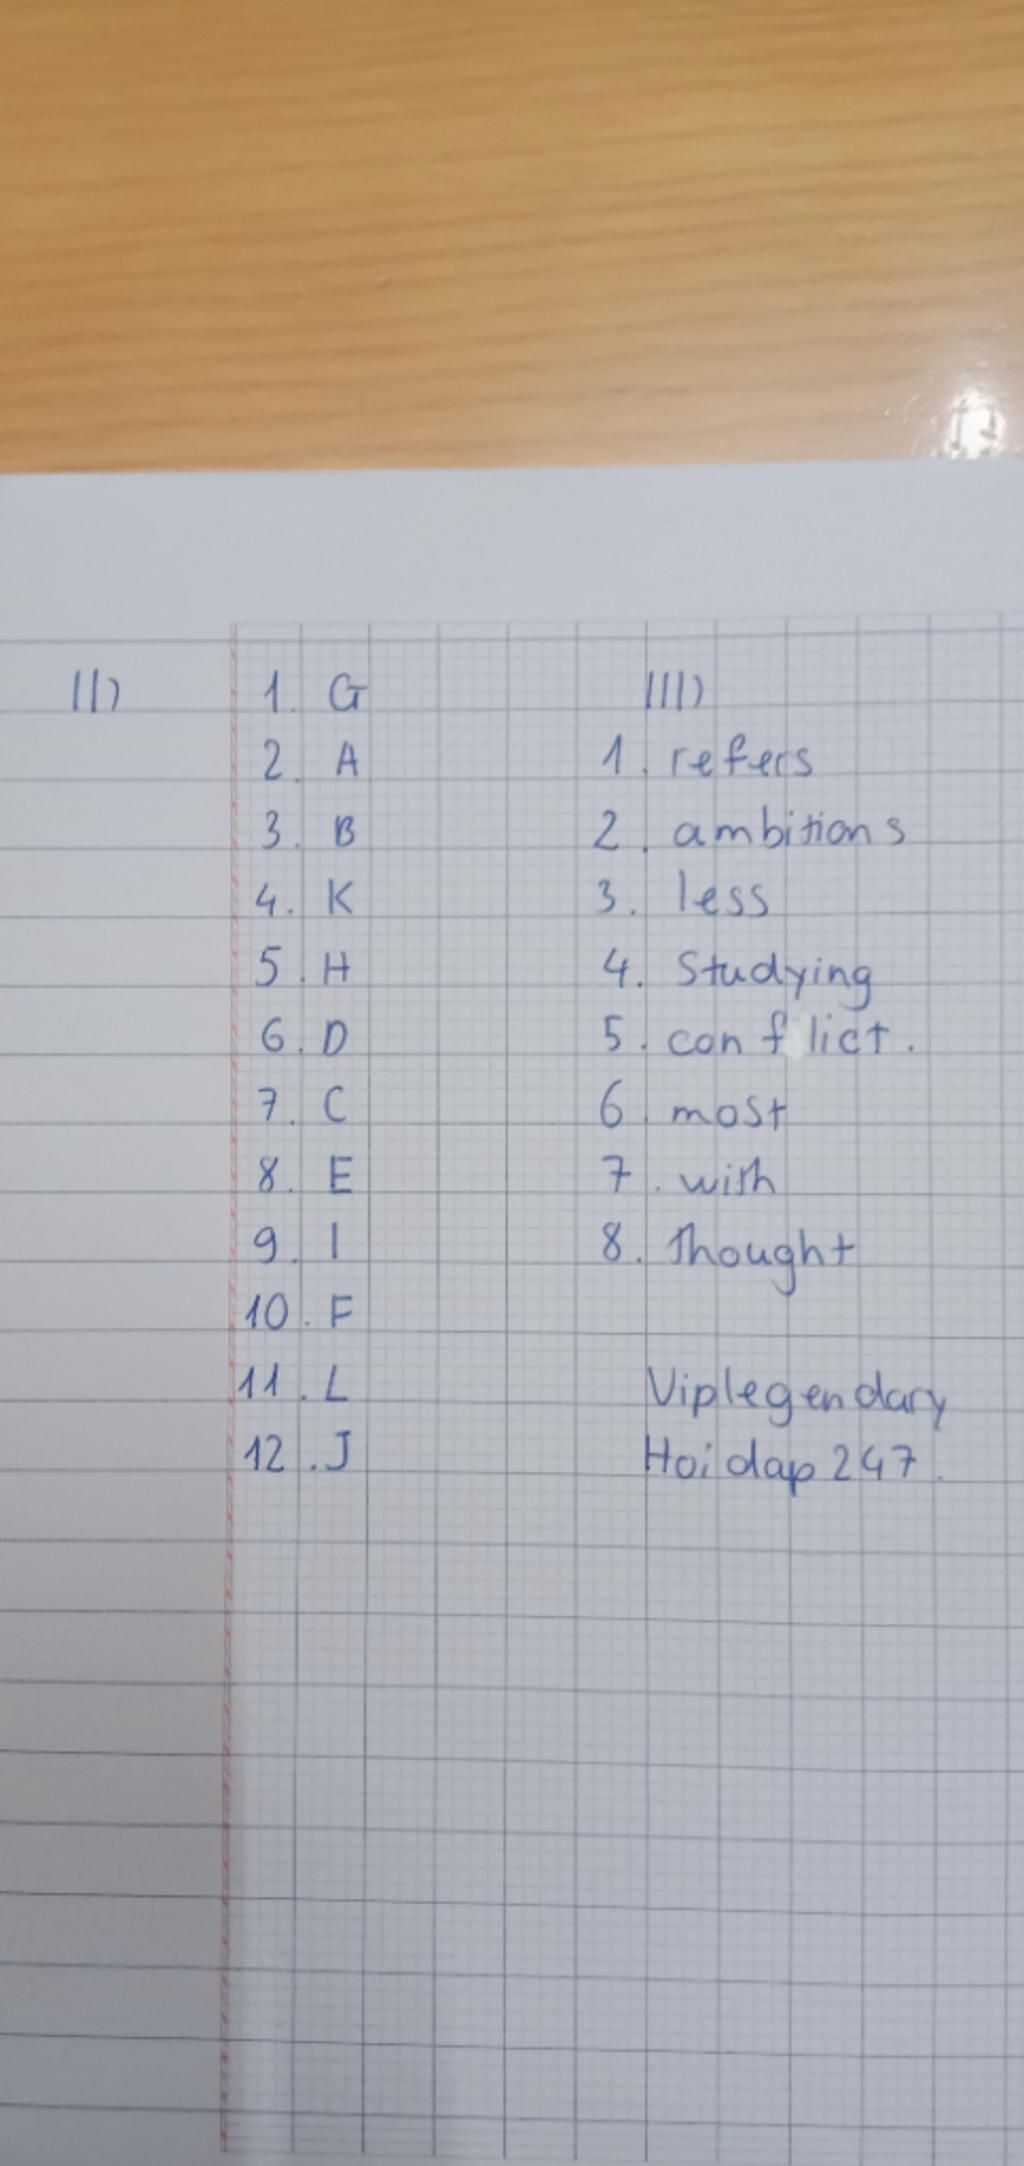 II)
1. G
2. A
3. B
4. K
5. H
6. D
7. C
8. E
9. I
10. F
11. L
12. J
III)
1. refers
2. ambitions
3. less
4. Studying
5. conflict.
6. most
7. with
8. Thought
Viplegendary
Hoidap247.